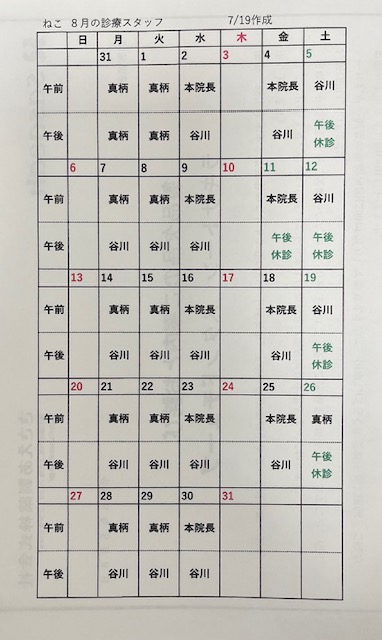 ねこ 8月の診療スタッフ 7/19作成
日 月 火 水 木 金 土
31 1 2 3 4 5
午前 真柄 真柄 本院長 本院長 谷川
午後 真柄 真柄 谷川 谷川 午後休診
6 7 8 9 10 11 12
午前 真柄 真柄 本院長 本院長 谷川
午後 谷川 谷川 谷川 午後休診 午後休診
13 14 15 16 17 18 19
午前 真柄 真柄 本院長 本院長 谷川
午後 谷川 谷川 谷川 谷川 午後休診
20 21 22 23 24 25 26
午前 真柄 真柄 本院長 本院長 真柄
午後 谷川 谷川 谷川 谷川 午後休診
27 28 29 30 31
午前 真柄 真柄 本院長
午後 谷川 谷川 谷川